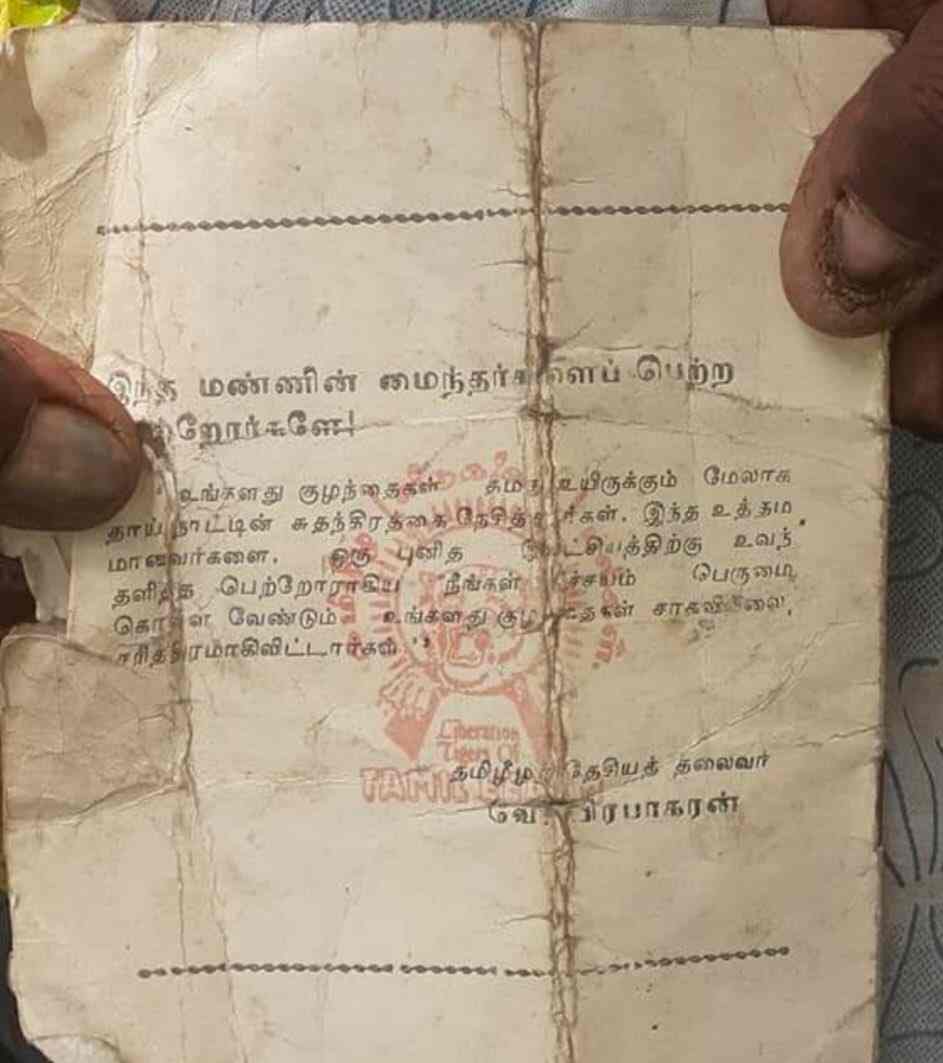 இந்த மண்ணின் மைந்தர்களைப் பெற்ற
பெற்றோர்களே!
உங்களது குழந்தைகள் தமது உயிருக்கும் மேலாக
தாய் நாட்டின் சுதந்திரத்தை நேசித்தார்கள். இந்த உத்தம
மானவர்களை, ஒரு புனித இலட்சியத்திற்கு உவந்
தளித்த பெற்றோராகிய நீங்கள் நிச்சயம் பெருமை
கொள்ள வேண்டும் உங்களது குழந்தைகள் சாகவில்லை,
சரித்திரமாகிவிட்டார்கள் ''
Liberation
Tigers Of
TAMIL EELAM
தமிழீழத் தேசியத் தலைவர்
வே. பிரபாகரன்